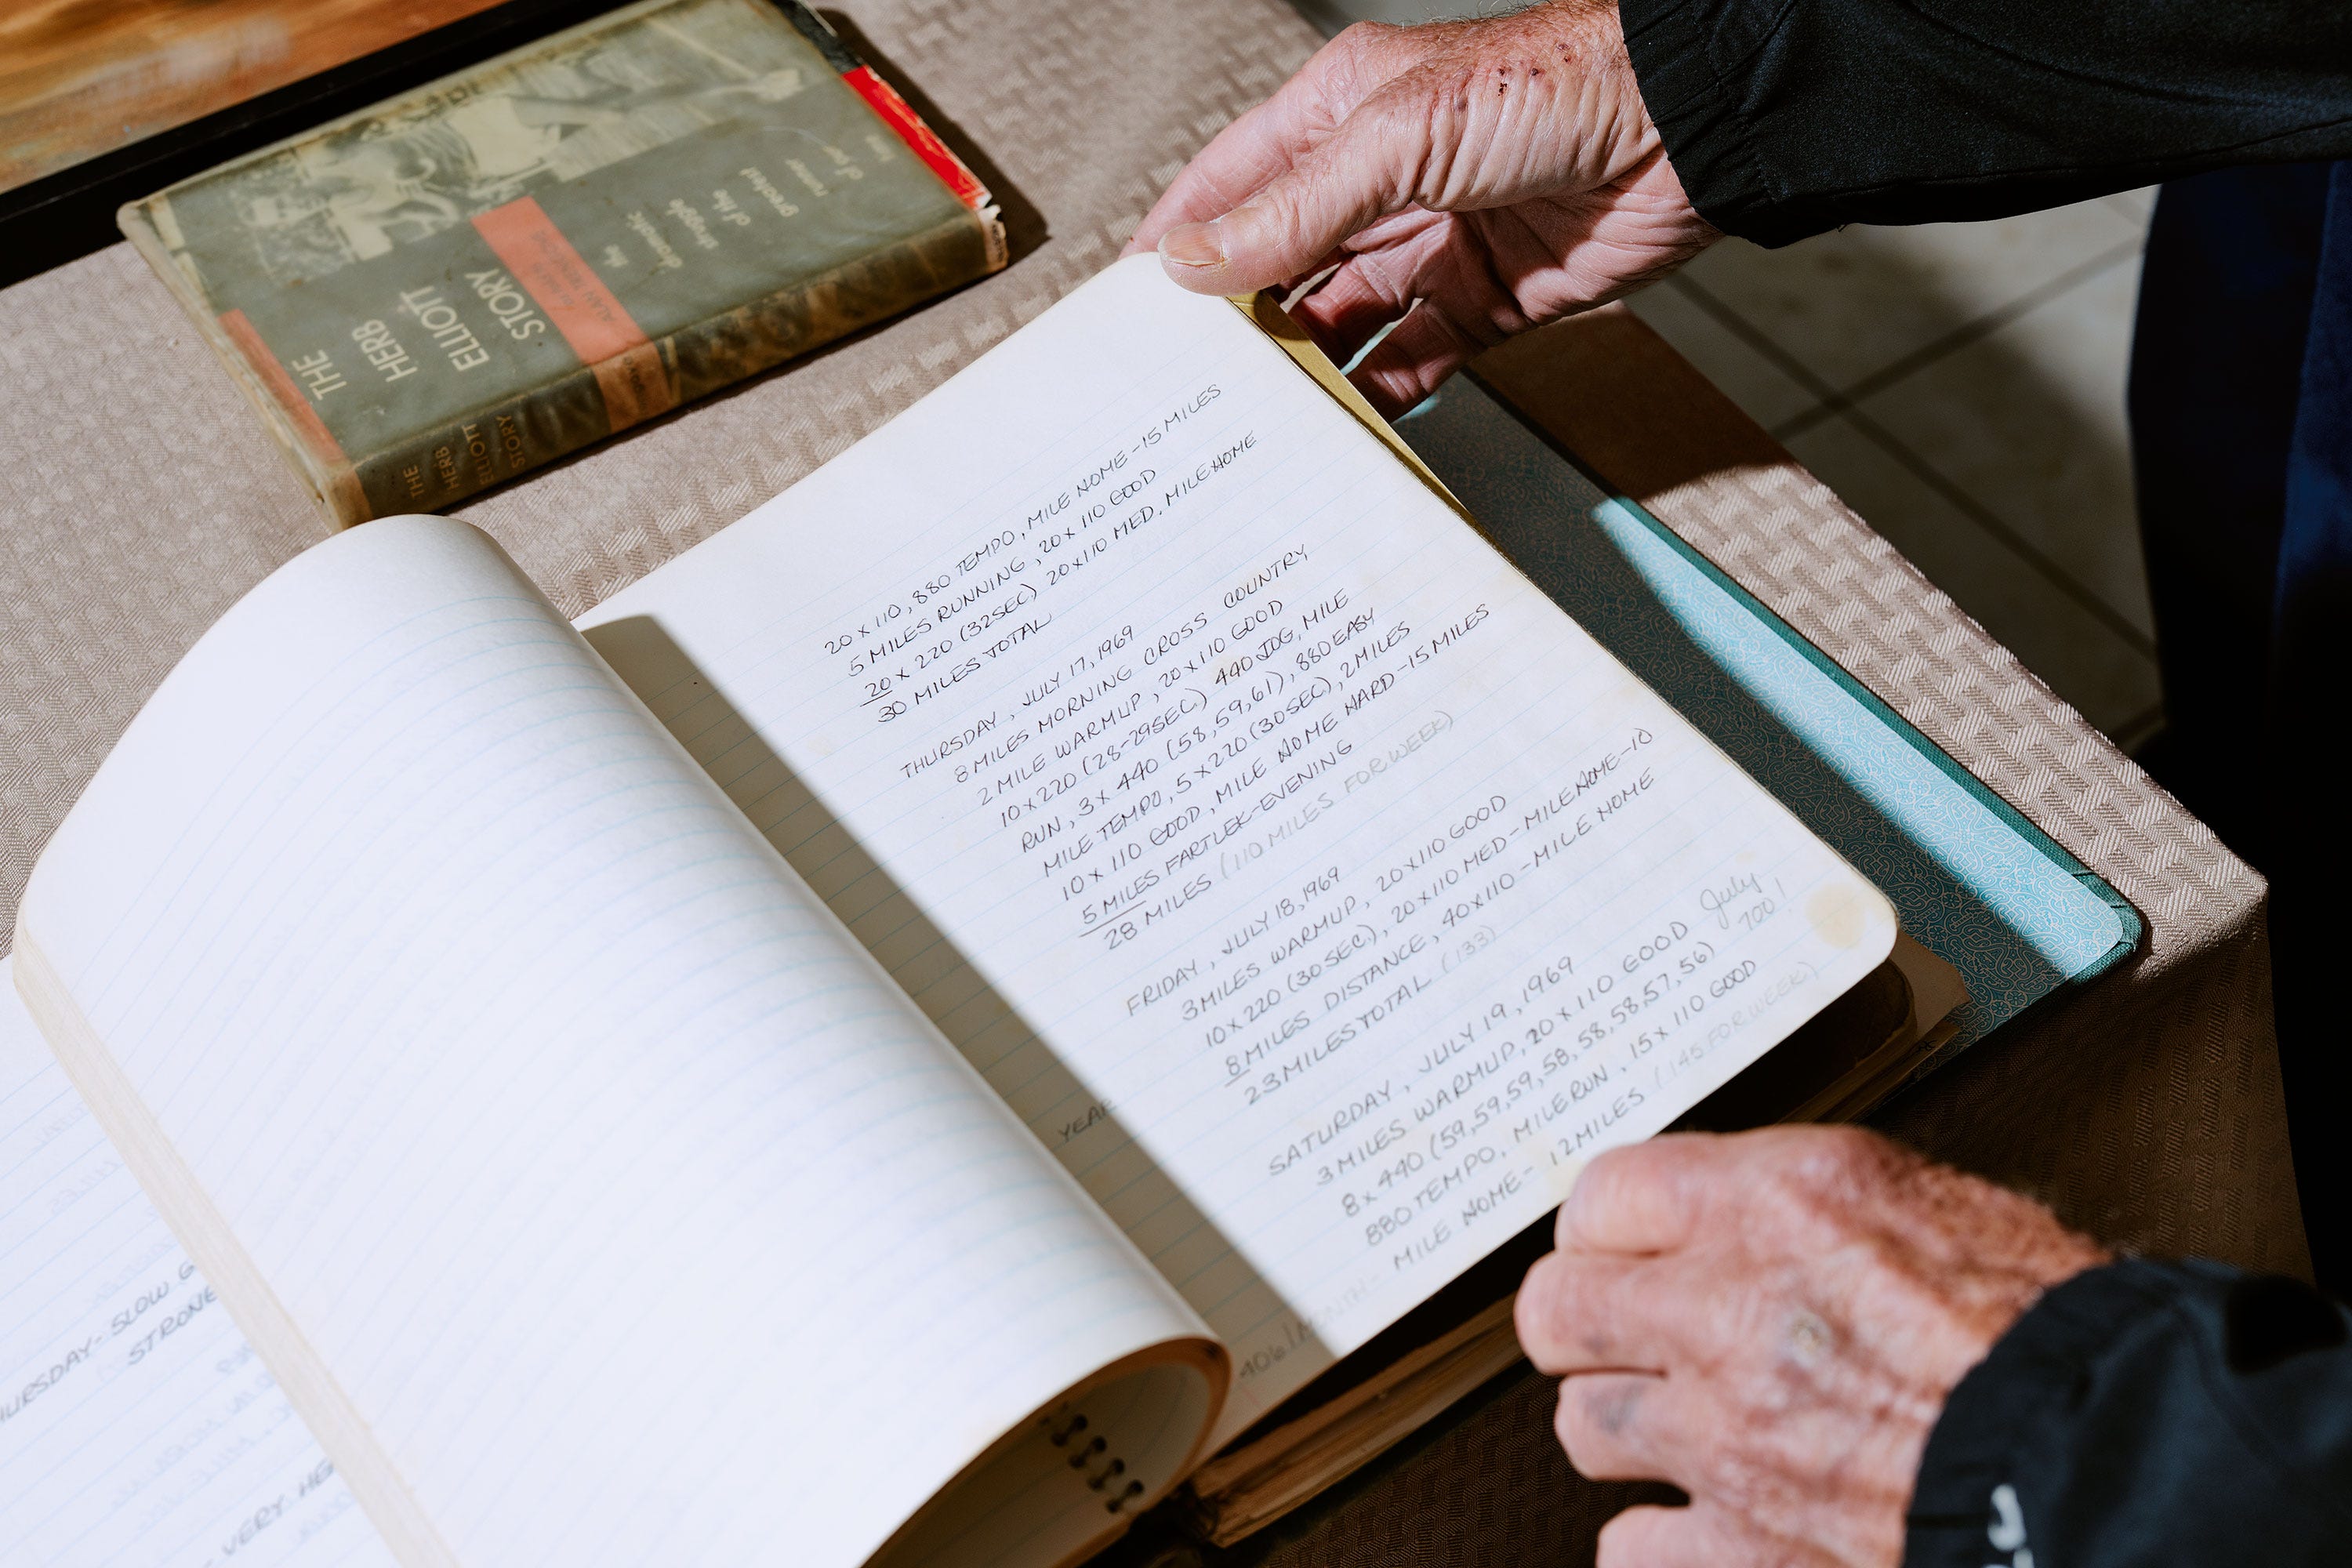 THE
HERB
ELIOTT
STORY
the
dramatic
struggle
of the
greatest
runner
THE
HERB
ELIOTT
STORY
20 X 110, 880 TEMPO, MILE HOME - 15 MILES
5 MILES RUNNING, 20 X 110 GOOD
20 X 220 (32SEC) 20X110 MED. MILE HOME
30 MILES TOTAL
THURSDAY, JULY 17, 1969
8 MILES MORNING CROSS COUNTRY
2 MILE WARMUP, 20X110 GOOD
10X220 (28-29SEC.) 440 JOG, MILE
RUN, 3X440 (58,59,61), 880 EASY
MILE TEMPO, 5X220 (30SEC), 2 MILES
10X110 GOOD, MILE HOME HARD - 15 MILES
5 MILES FARTLEK - EVENING
28 MILES (110 MILES FOR WEEK)
FRIDAY, JULY 18, 1969
3 MILES WARMUP, 20X110 GOOD
10X220 (30SEC), 20X110 MED - MILE HOME - 10
8 MILES DISTANCE, 40X110 - MILE HOME
23 MILES TOTAL (133)
SATURDAY, JULY 19, 1969
3 MILES WARMUP, 20X110 GOOD
8X440 (59,59,59,58,58,58,57,56)
880 TEMPO, MILE RUN, 15X110 GOOD
MILE HOME - 12 MILES (145 FOR WEEK)
July
700!
YEAR
406/MONTH-
SLOW
STRONE
VERY